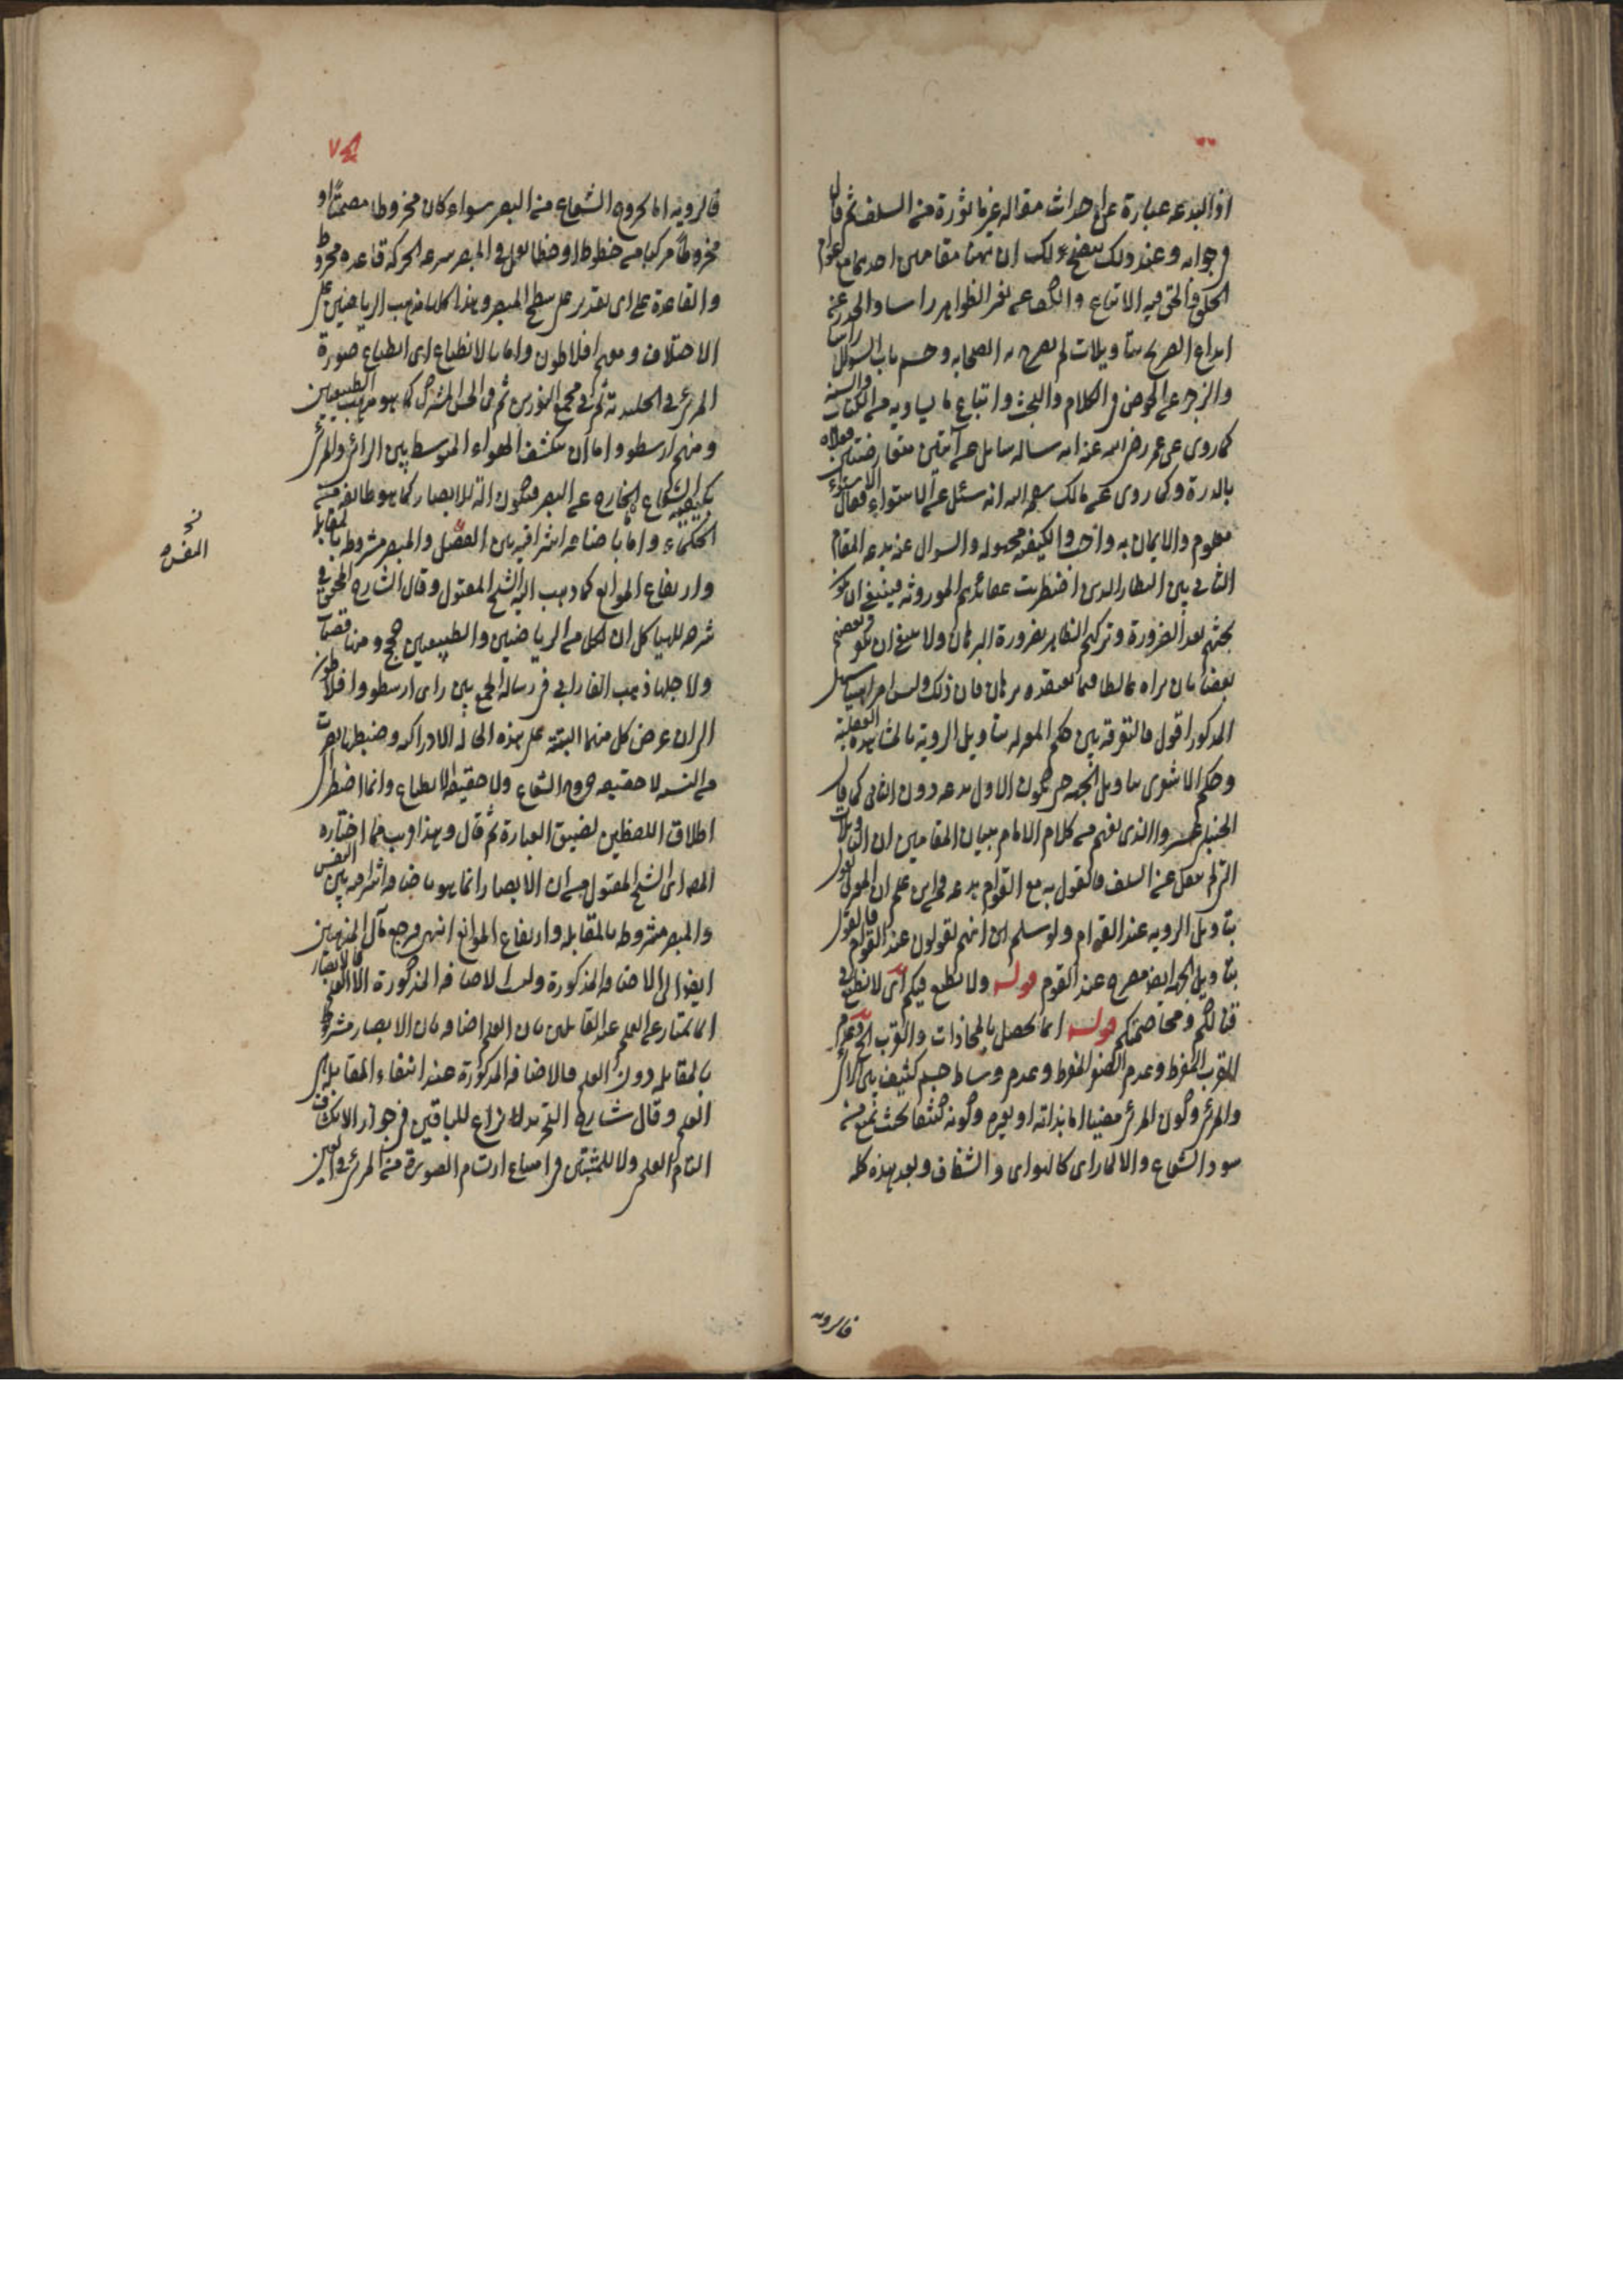 اذ البدعه عبارة عن احداث مقاله غير ماثورة من السلف ثم قال
في جوابه وعند ذلك يتضح لك ان ههنا مقامين احدهما مع عوام
الخلق والحق فيه الاتباع والكف عن تغير الظواهر راسا والحذر عن
ابداع التصريح بتاويلات لم يصرح به الصحابه وحسم باب السوال راسا
والزجر عن الخوض في الكلام والبحث واتباع ما تشابه من الكتاب والسنه
كما روى عن عمر رضي الله عنه انه ساله سايل عن آيتين متعارضتين فعلاه
بالدرة وكما روى عن مالك رحمه الله انه سئل عن الاستواء فقال الاستواء
معلوم والايمان به واجب والكيفيه مجهوله والسوال عنه بدعه المقام
الثاني بين النظار الذين اضطربت عقائدهم الموروثه فينبغي ان يكون
بحثهم بقدر الضرورة وتركهم الظاهر بضرورة البرهان ولا ينبغي ان يكفر بعضهم
بعضا بان يراه غالطا فيما يعتقده برهان فان ذلك ليس امرا هينا سهل
المدرك اقول فالتفرقه بين حكم المعتزله بتاويل الروية بالمشاهده العقلية
وحكم الاشعرى بتاويل الجهه حتى يكون الاول بدعه دون الثاني كما قال
الحنبلى عسير والذى يفهم من كلام الامام ببيان المقامين ان التاويلات
التي لم ينقل عن السلف فالقول به مع العوام بدعه فمن اين علم ان المعتزلى يقول
بتاويل الرويه عند العوام ولو سلم ان انهم يقولون عند العوام فالقول
بتاويل الجهه ايضا مصرح عند القوم قوله ولا نطمع فيكم اى لا نطمع في
قتالكم ومخاصمتكم قوله انما تحصل بالمحاذات والقرب الخ وعدم
القرب المفرط وعدم الصغر المفرط وعدم وساط جسم كثيف بين الرائى
والمرئى وكون المرئى مضيئا اما بذاته او بغيره وكونه كثيفا بحيث يمنع من
نفوذ الشعاع والا لما راى كالهواى والشفاف وبعد هذه كله
فالرويه
فالرويه اما بخروج الشعاع من البصر سواء كان مخروطا مصمتا او
مخروطا مركبا من خطوط او خطا يصل في المبصر سرعه الحركه قاعده مخروط
والقاعدة على اى تقدير على سطح المبصر وهذا كله مذهب الرياضيين على
الاختلاف ومنهم افلاطون واما بالانطباع اى انطباع صورة
المرئى في الجليديه ثم في مجمع النورين ثم في الحس المشترك كما هو مذهب الطبيعيين
ومنهم ارسطو واما ان يتكيف الهواء المتوسط بين الرائى والمرئى
بكيفيه الشعاع الخارج عن البصر فيكون الة للابصار كما هو طائفه من
الحكماء واما باضافه اشراقيه بين النفس والمبصر مشروطه بالمقابله
وارتفاع الموانع كما ذهب اليه الشيخ المقتول وقال الشارح المحقق في
شرحه للهياكل ان لكل من الرياضيين والطبيعيين حجج ومناقضات
ولاجلها ذهب الفارابى في رسالة الجمع بين راى ارسطو وافلاطون
الى ان غرض كل منهما التنبيه على هذه الحالة الادراكيه وضبطها بضرب
من التشبيه لا حقيقه خروج الشعاع ولا حقيقه الانطباع وانما اضطر الى
اطلاق اللفظين لضيق العبارة ثم قال وهذا قريب مما اختاره
المص اى الشيخ المقتول من ان الابصار انما هو باضافه اشراقيه بين النفس
والمبصر مشروطه بالمقابله وارتفاع الموانع انتهى فرجع مآل المذهبين
ايضا الى الاضافه المذكورة وليست الاضافه المذكورة الا العلم فالابصار
انما يمتاز عن العلم عند القائلين بان العلم اضافه بان الابصار مشروط
بالمقابله دون العلم فالاضافه المذكورة عند انتفاء المقابله هى
العلم وقال شارح التجريد لا نزاع للنافين في جواز الانكشاف
التام العلمى ولا للمثبتين في امتناع ارتسام الصورة من المرئى في العين
نخ
النفس